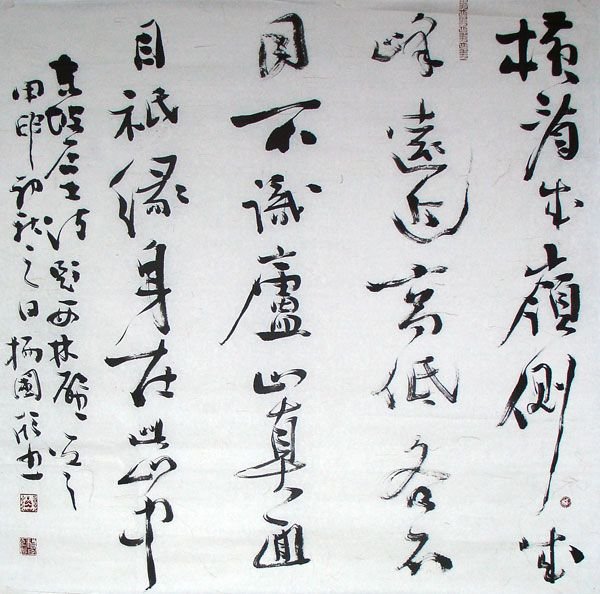 橫看成嶺側成
峰遠近高低各不
同不識廬山真面
目祇緣身在此山中
東坡居士詩題西林壁
甲申初秋之日楊國